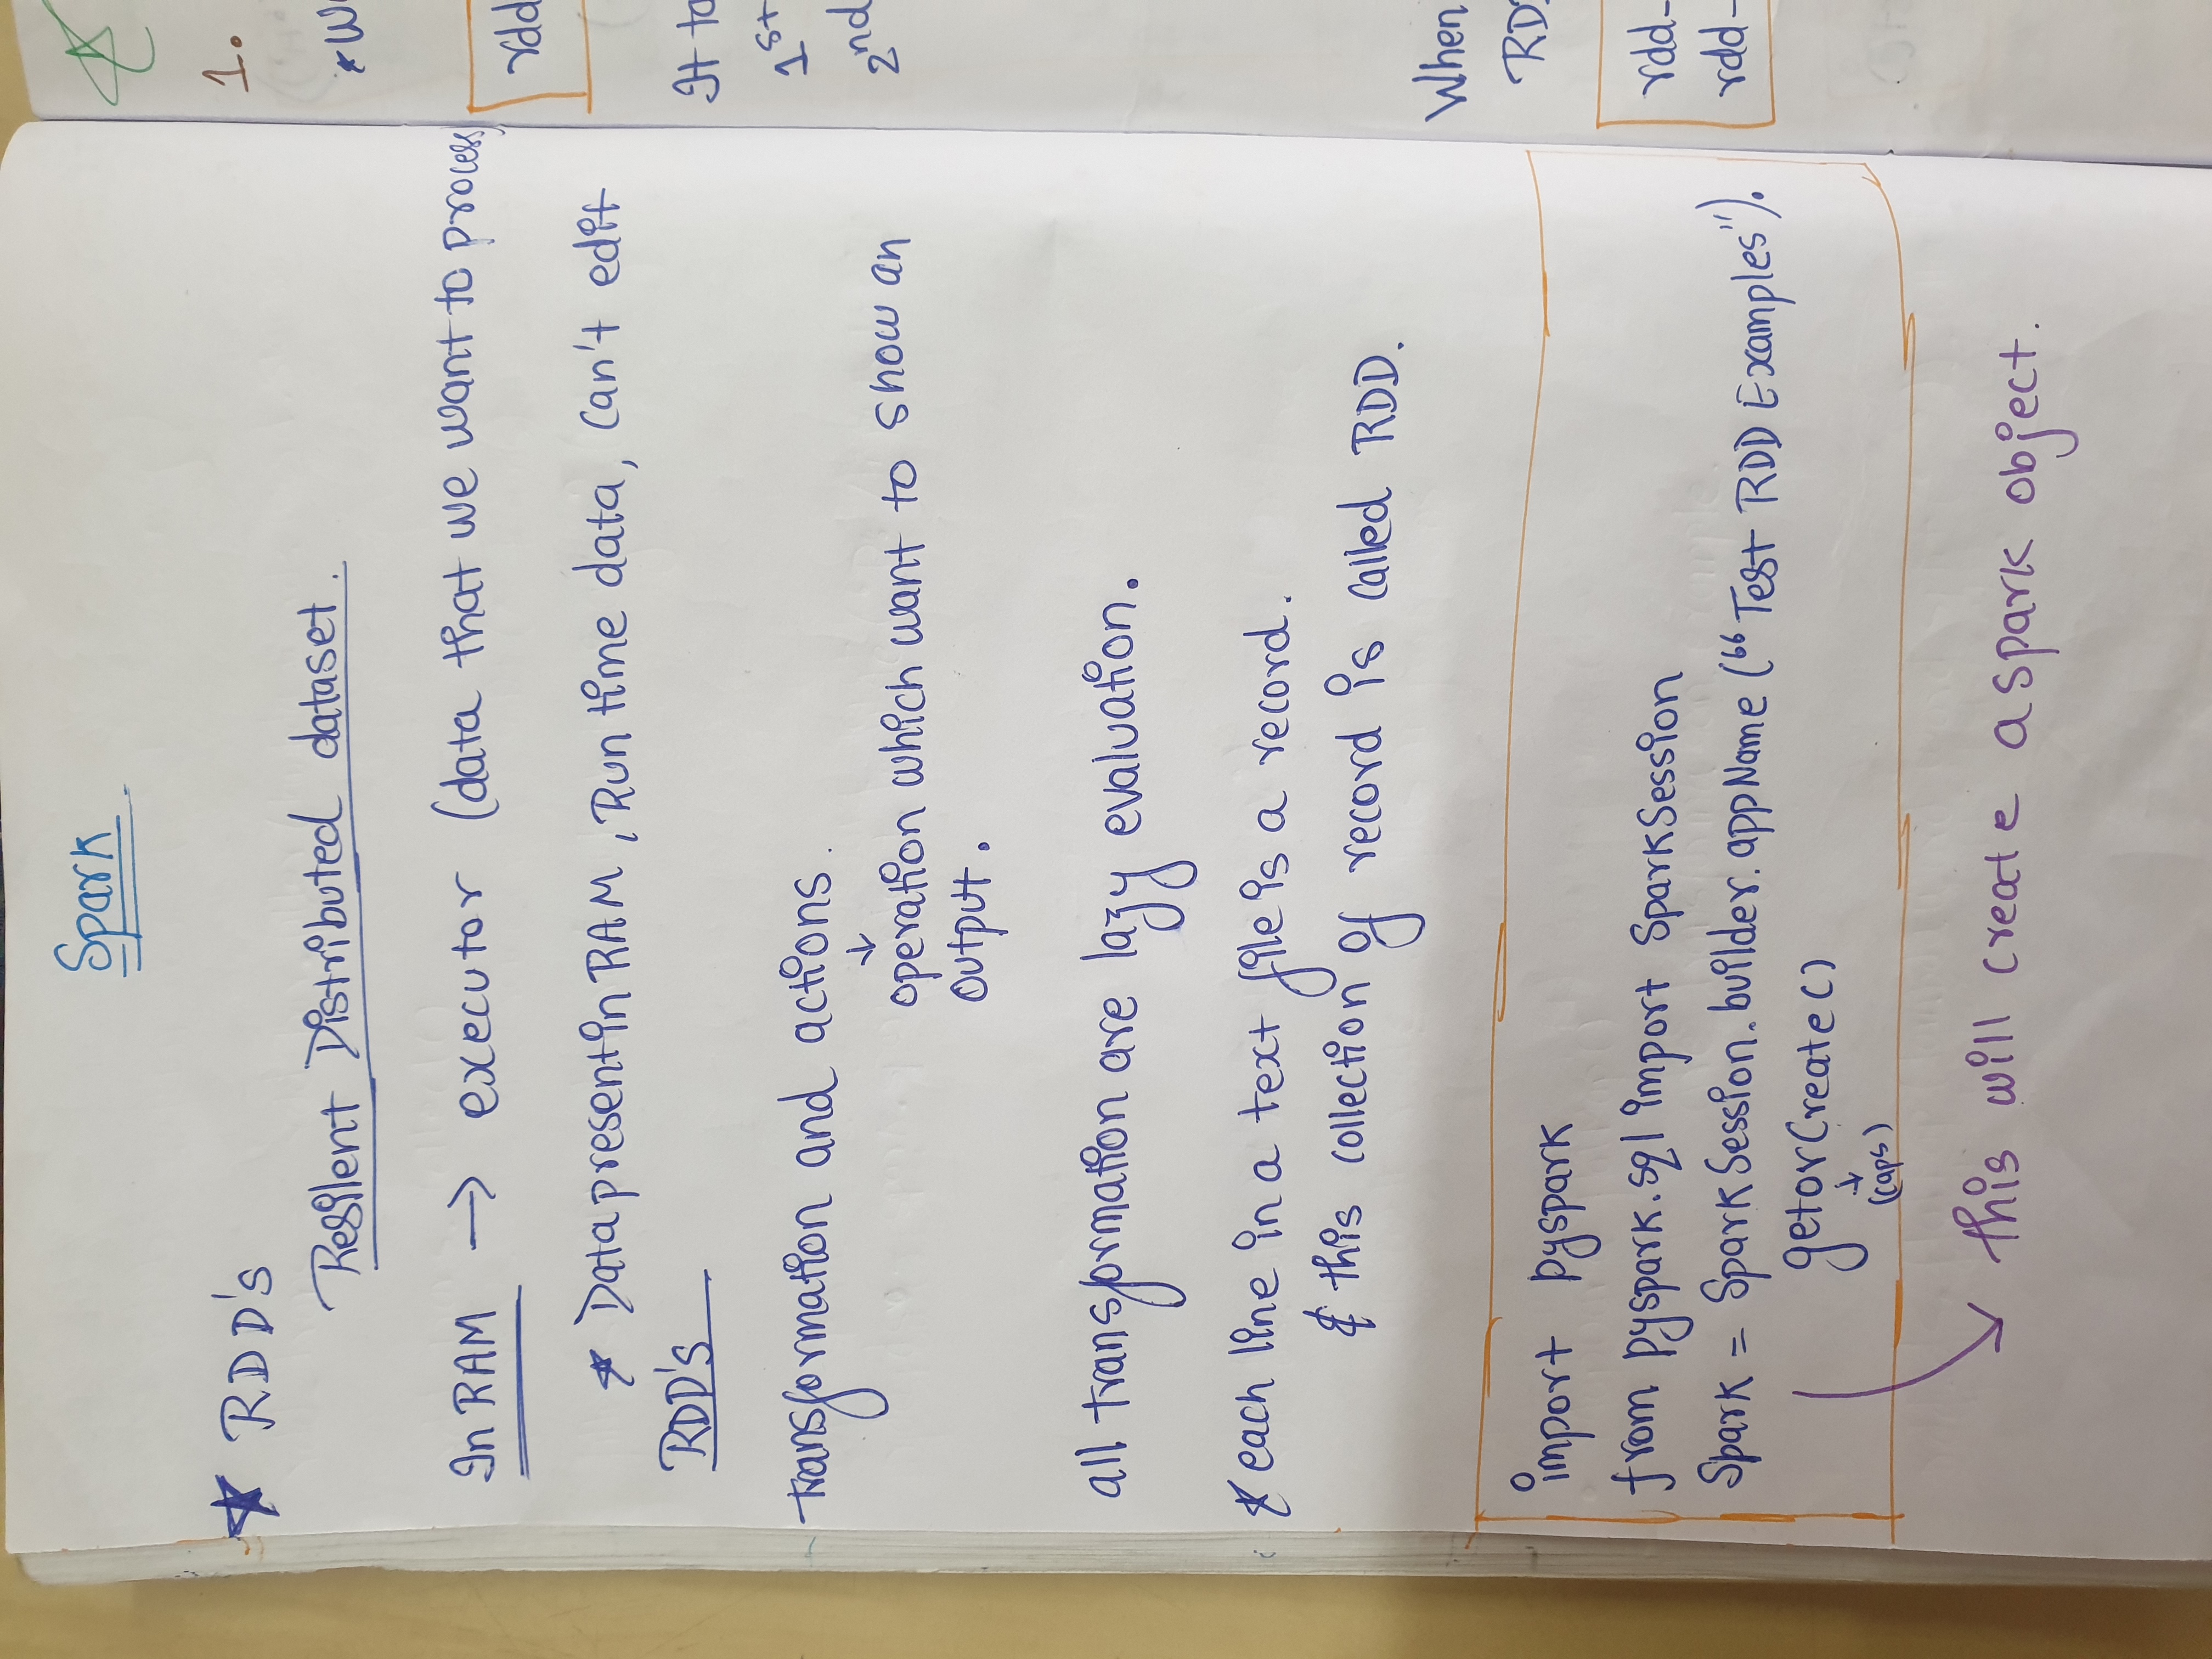 Spark
★ RDD's
Resilent Distributed dataset.
In RAM → executor (data that we want to process)
* Data present in RAM, Run time data, can't edit
RDD's
transformation and actions.
↓
operation which want to show an
output.
all transformation are lazy evaluation.
* each line in a text file is a record.
& this collection of record is called RDD.
import pyspark
from pyspark.sql import SparkSession
Spark = SparkSession.builder.appName (“Test RDD Examples”).
getorCreate()
↓
(caps)
this will create a spark object.
1.
rdd
It to
1st
2nd
When
rdd-
rdd-